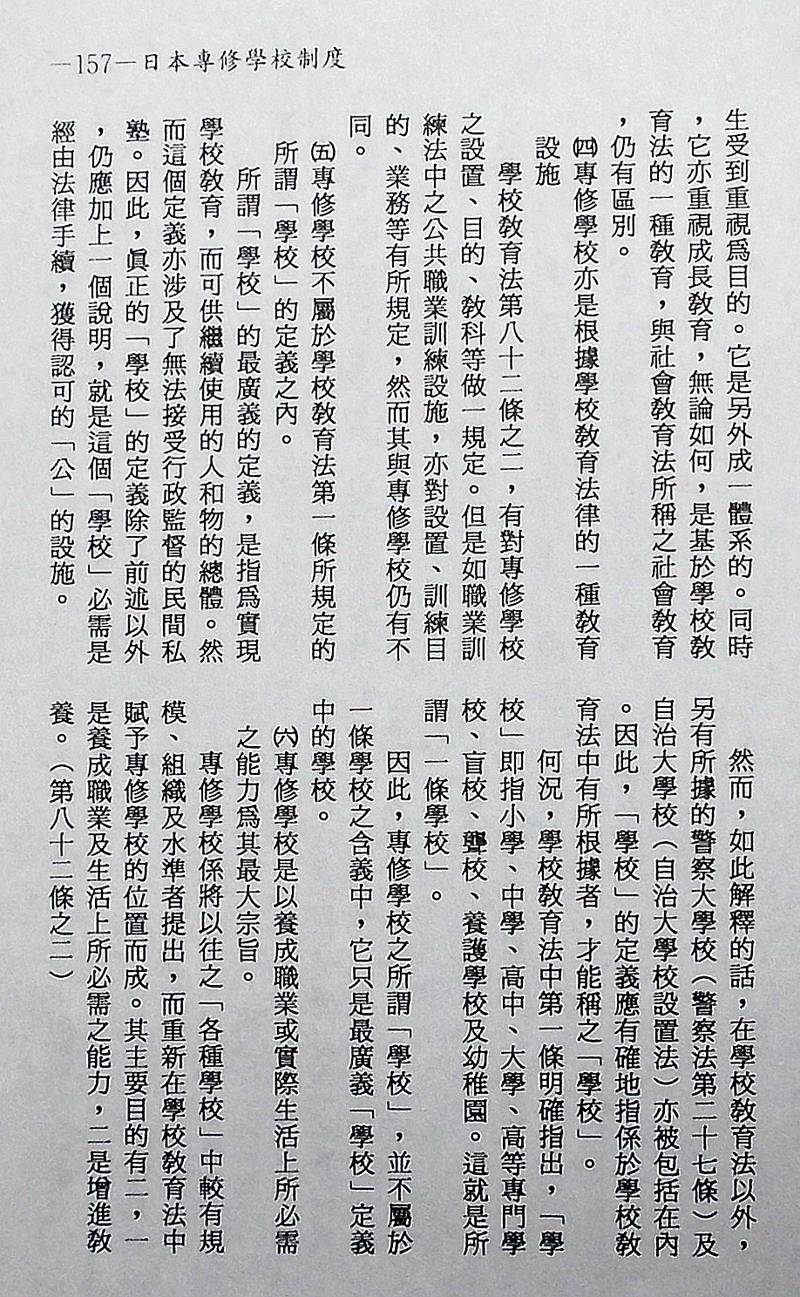 —157—日本專修學校制度
生受到重視爲目的。它是另外成一體系的。同時
，它亦重視成長教育，無論如何，是基於學校教
育法的一種教育，與社會教育法所稱之社會教育
，仍有區別。
㈣專修學校亦是根據學校教育法律的一種教育
設施
學校教育法第八十二條之二，有對專修學校
之設置、目的、教科等做一規定。但是如職業訓
練法中之公共職業訓練設施，亦對設置、訓練目
的、業務等有所規定，然而其與專修學校仍有不
同。
㈤專修學校不屬於學校教育法第一條所規定的
所謂「學校」的定義之內。
所謂「學校」的最廣義的定義，是指爲實現
學校教育，而可供繼續使用的人和物的總體。然
而這個定義亦涉及了無法接受行政監督的民間私
塾。因此，眞正的「學校」的定義除了前述以外
，仍應加上一個說明，就是這個「學校」必需是
經由法律手續，獲得認可的「公」的設施。
然而，如此解釋的話，在學校教育法以外，
另有所據的警察大學校（警察法第二十七條）及
自治大學校（自治大學校設置法）亦被包括在內
。因此，「學校」的定義應有確地指係於學校教
育法中有所根據者，才能稱之「學校」。
何況，學校教育法中第一條明確指出，「學
校」即指小學、中學、高中、大學、高等專門學
校、盲校、聾校、養護學校及幼稚園。這就是所
謂「一條學校」。
因此，專修學校之所謂「學校」，並不屬於
一條學校之含義中，它只是最廣義「學校」定義
中的學校。
㈥專修學校是以養成職業或實際生活上所必需
之能力爲其最大宗旨。
專修學校係將以往之「各種學校」中較有規
模、組織及水準者提出，而重新在學校教育法中
賦予專修學校的位置而成。其主要目的有二，一
是養成職業及生活上所必需之能力，二是增進教
養。（第八十二條之二）